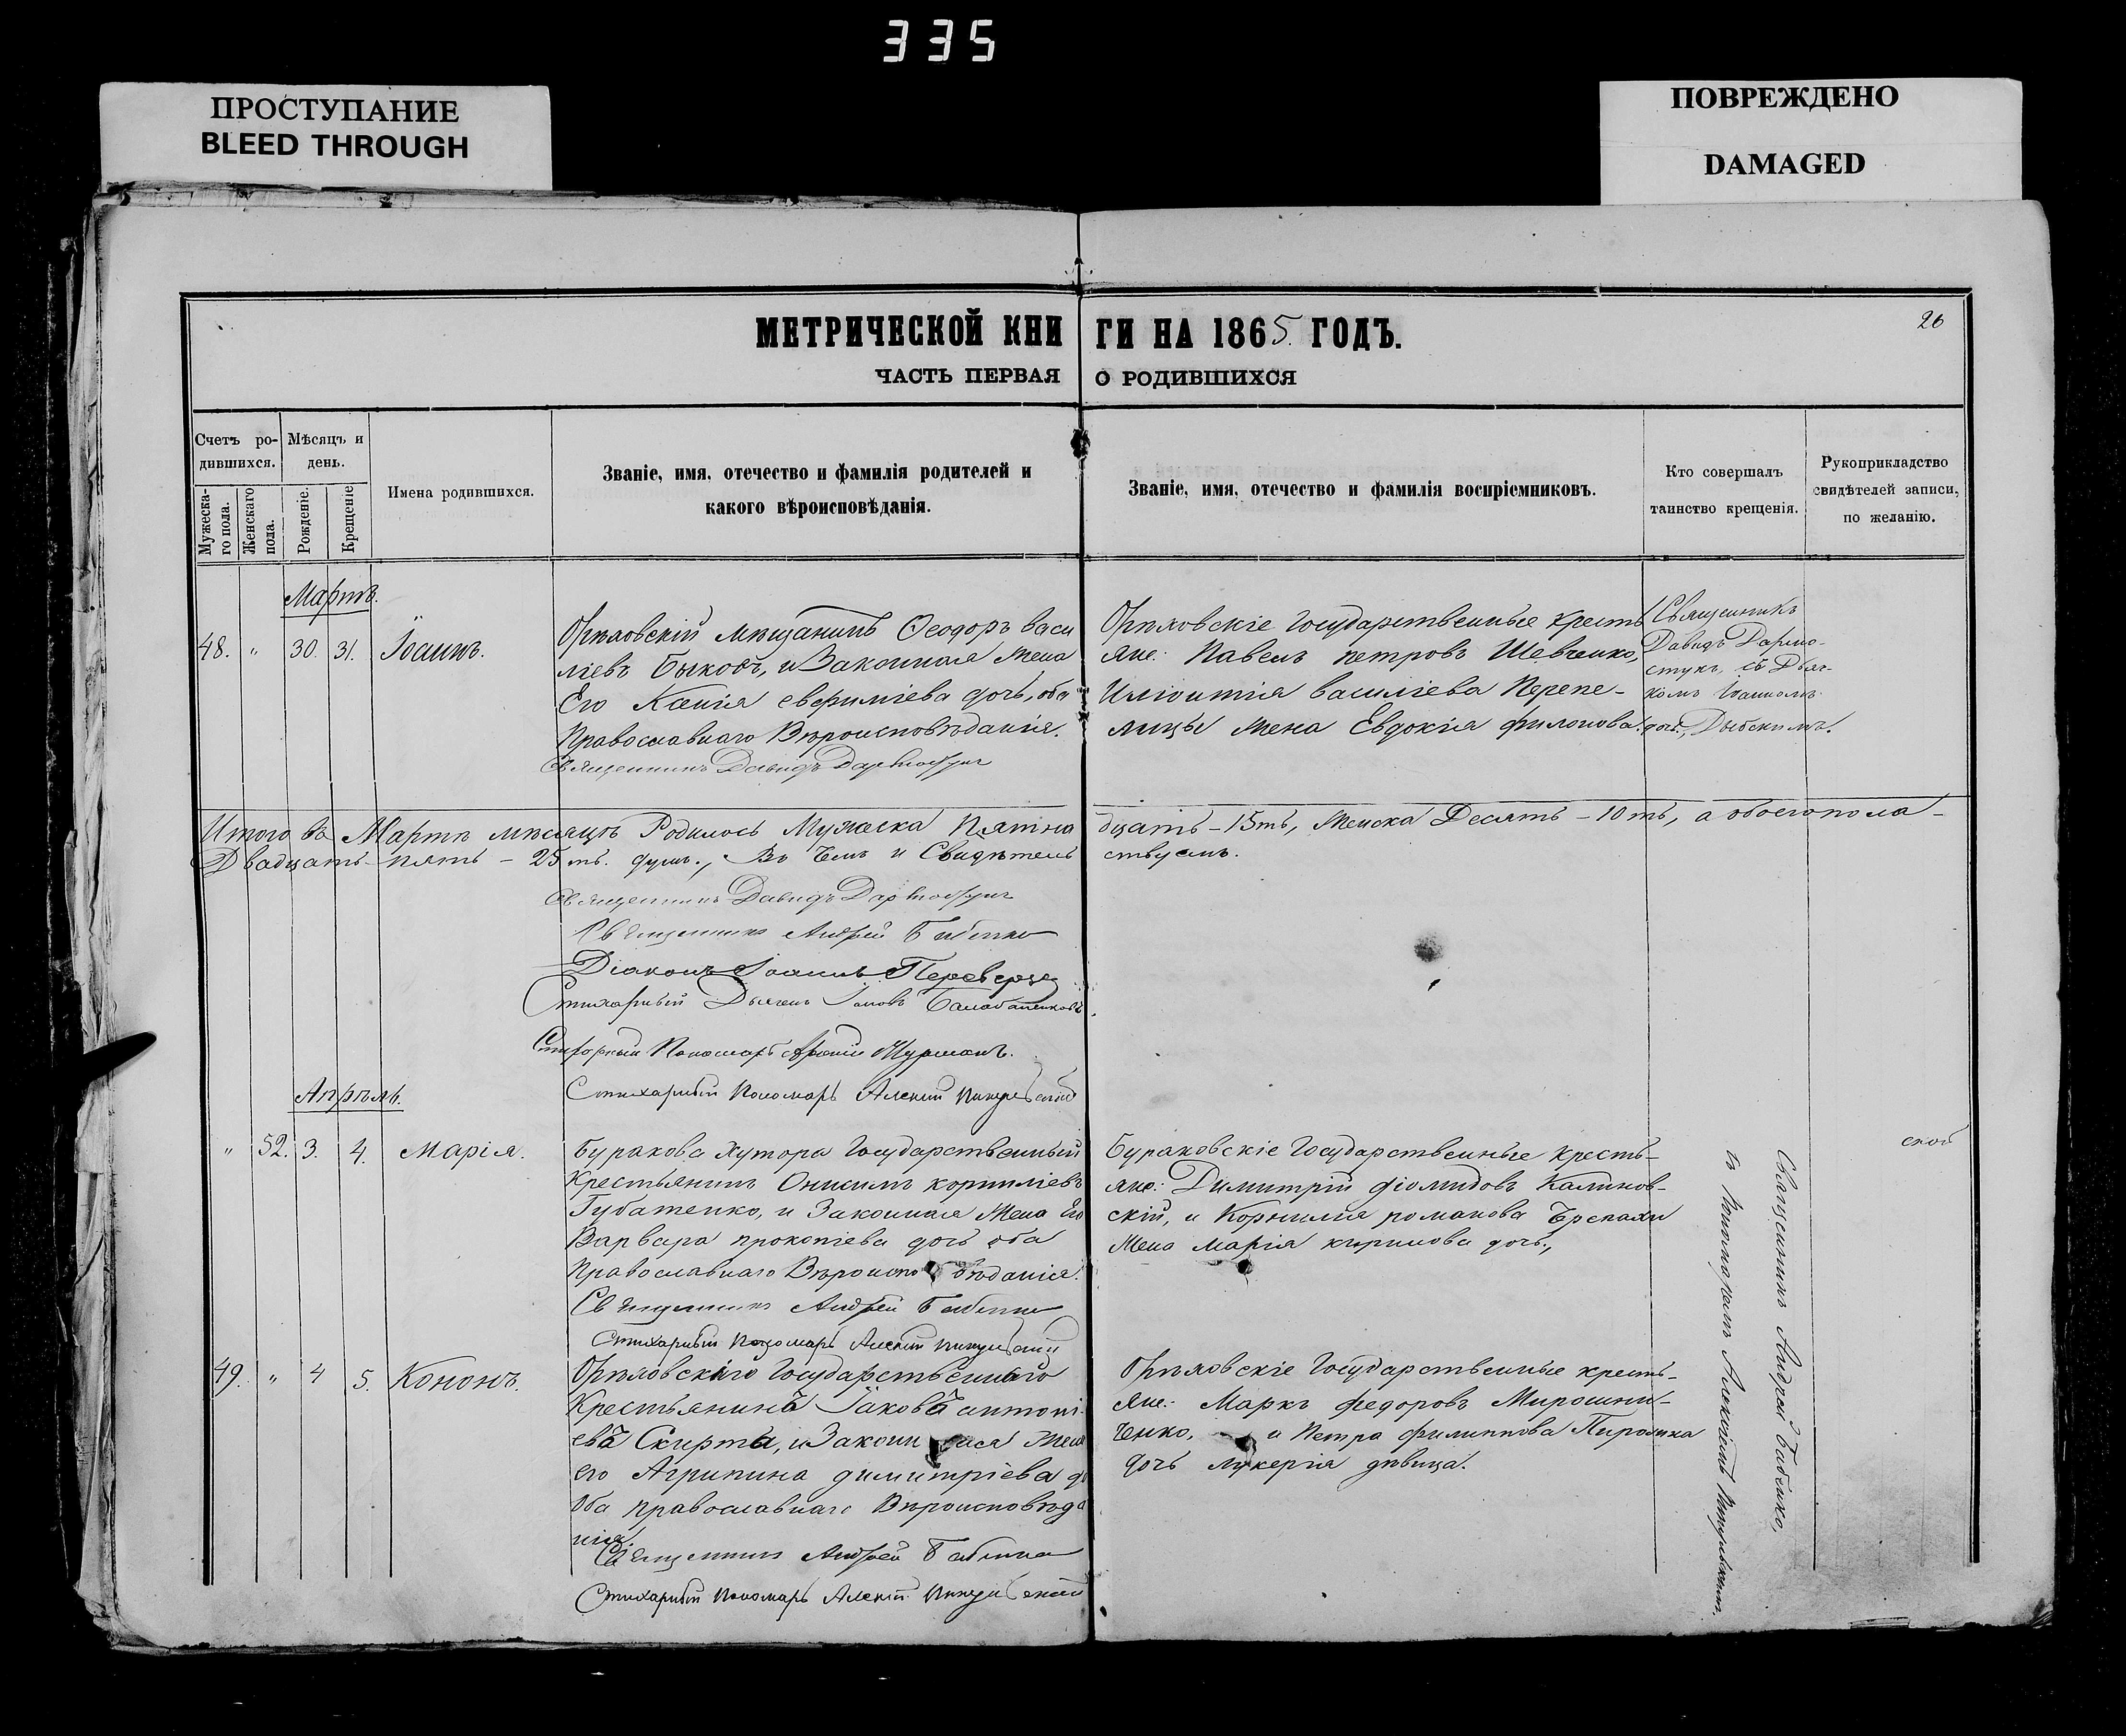 335
ПРОСТУПАНИЕ
BLEED THROUGH
ПОВРЕЖДЕНО
DAMAGED
26
МЕТРИЧЕСКОЙ КНИГИ НА 1865. ГОДЪ.
ЧАСТЬ ПЕРВАЯ О РОДИВШИХСЯ
Счетъ ро-
дившихся.
Мужеска-
го пола.
Женскаго
пола.
Мѣсяцъ и
день.
Рожденіе.
Крещеніе
Имена родившихся.
Званіе, имя, отечество и фамилія родителей и
какого вѣроисповѣданія.
Званіе, имя, отечество и фамилія воспріемниковъ.
Кто совершалъ
таинство крещенія.
Рукоприкладство
свидѣтелей записи,
по желанію.
Мартъ.
48. " 30. 31. Іоаннъ.
Орѣховскій мѣщанинъ Ѳеодоръ васи
ліевъ Быковъ, и Законная жена
Его Ксенія евфиміева дочь, оба
Православнаго Вѣроисповѣданія.
Священникъ Давидъ
Орѣховскіе Государственные кресть
яне: Павелъ петровъ Шевченко,
василіева Перепе-
лицы жена Евдокія филонова дочь,
Священникъ
Давидъ Дармо-
стукъ, съ Дьяч-
комъ Іоанномъ
Итого въ Мартѣ мѣсяцѣ Родилось Мужеска Пятна
дцать - 15ть, Женска Десять - 10ть, а обоего пола -
Двадцать пять - 25ть. душъ., Въ чемъ и Свидѣтель
ствуемъ.
Священникъ Давидъ
Священникъ Андрей Бабенко
Діаконъ Іоаннъ
Стихарный Дьячекъ
Пономарь
Стихарный Пономарь Алексій
Апрѣль.
" 52. 3. 4. Марія.
Буракова Хутора Государственный
Крестьянинъ Онисимъ корниліевъ
Губатенко, и Законная Жена Его
Варвара прокопіева дочь оба
Православнаго Вѣроисповѣданія.
Священникъ Андрей Бабенко
Стихарный Пономарь Алексій
Бураковскіе Государственные кресть-
яне: Димитрій Калинов-
скій, и Корнилія романова
Жена Марія кирилова дочь.,
Священникъ Андрей Бабенко,
съ Пономаремъ Алексіемъ
ской
49. " 4 5. Кононъ.
Орѣховскаго Государственнаго
Крестьянина Іакова антоні-
ева Скирта, и Законная Жена
его Агрипина димитріева до
Оба православнаго Вѣроисповѣда
нія.
Священникъ Андрей Бабенко
Стихарный Пономарь Алексій
Орѣховскіе Государственные кресть-
яне: Маркъ федоровъ Мирошни-
ченко, и Петра филиппова
дочь лукерія дѣвица.